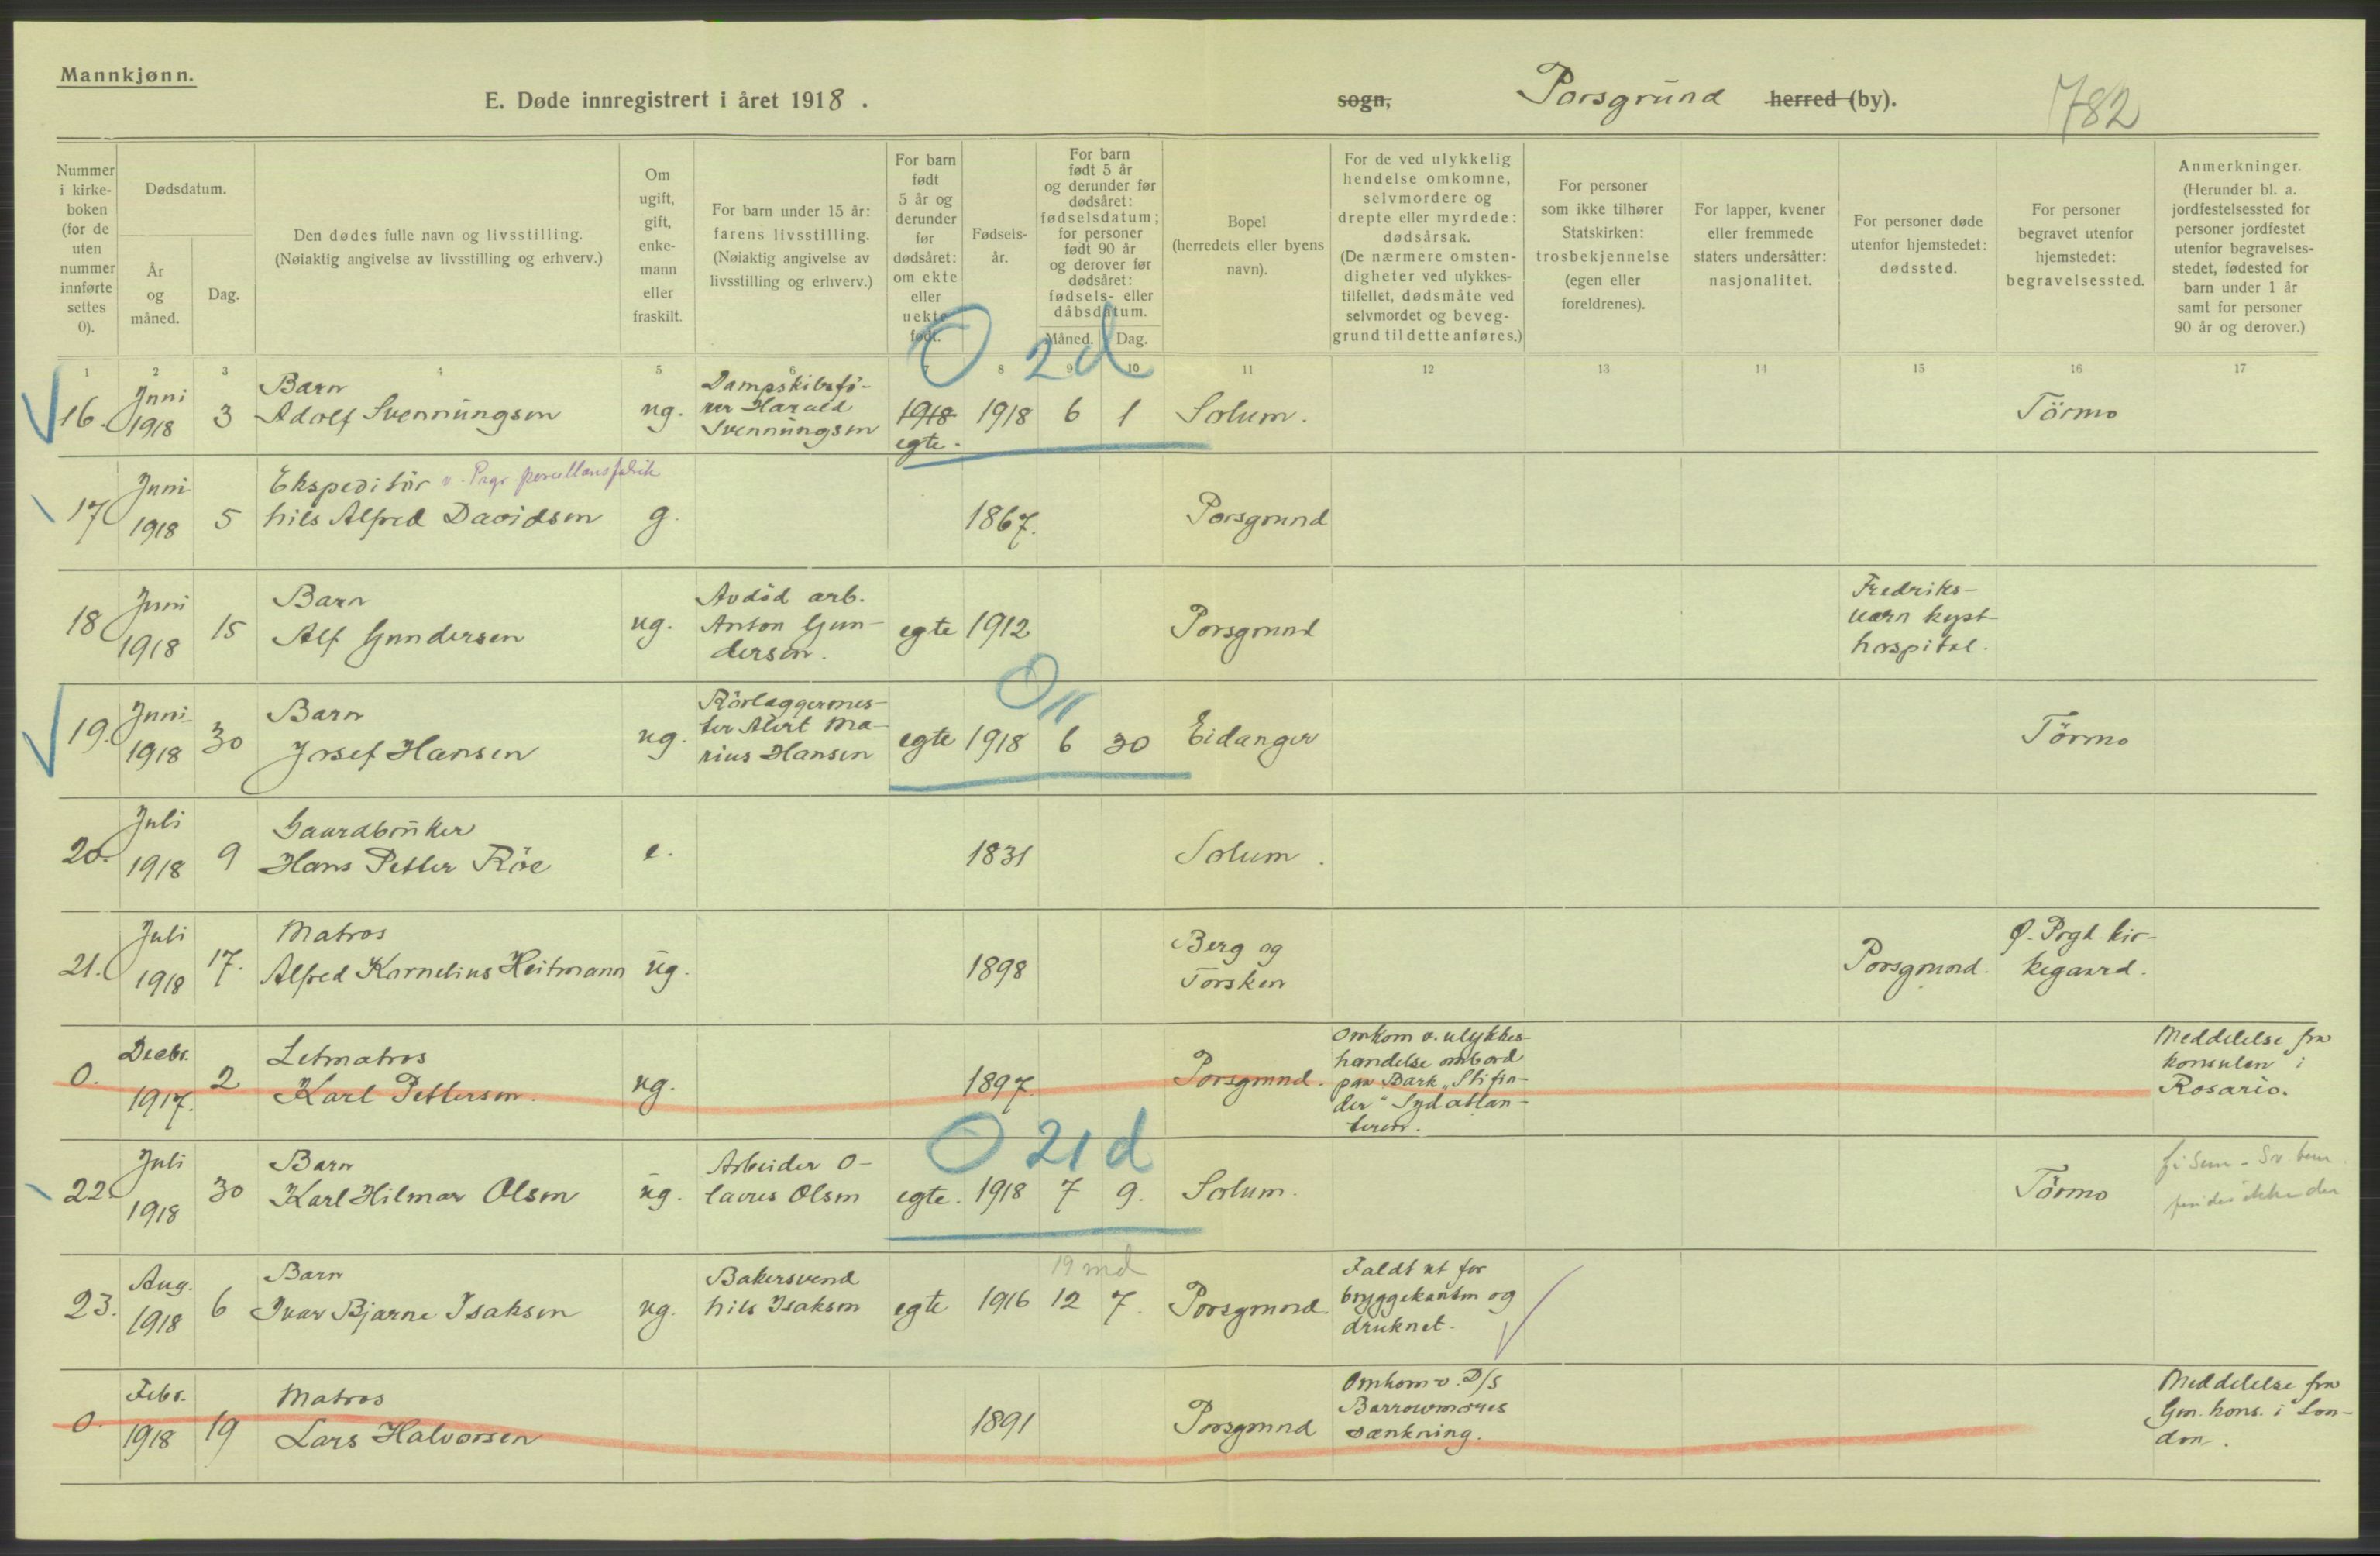 Mannkjønn.
E. Døde innregistrert i året 1918.
sogn, Porsgrund herred (by).
782
Nummer i kirke-boken (for de uten nummer innførte settes 0).
Dødsdatum.
År og måned.
Dag.
Den dødes fulle navn og livsstilling.
(Nøiaktig angivelse av livsstilling og erhverv.)
Om ugift, gift, enke-mann eller fraskilt.
For barn under 15 år: farens livsstilling.
(Nøiaktig angivelse av livsstilling og erhverv.)
For barn født 5 år og derunder før dødsåret: om ekte eller uekte født.
Fødsels-år.
For barn født 5 år og derunder før dødsåret: fødselsdatum; for personer født 90 år og derover før dødsåret: fødsels- eller dåbsdatum.
Måned. Dag.
Bopel (herredets eller byens navn).
For de ved ulykkelig hendelse omkomne, selvmordere og drepte eller myrdede: dødsårsak.
(De nærmere omsten-digheter ved ulykkes-tilfellet, dødsmåte ved selvmordet og beveg-grund til dette anføres.)
For personer som ikke tilhører Statskirken: trosbekjennelse (egen eller foreldrenes).
For lapper, kvener eller fremmede staters undersåtter: nasjonalitet.
For personer døde utenfor hjemstedet: dødssted.
For personer begravet utenfor hjemstedet: begravelsessted.
Anmerkninger.
(Herunder bl. a. jordfestelsessted for personer jordfestet utenfor begravelses-stedet, fødested for barn under 1 år samt for personer 90 år og derover.)
1 2 3 4 5 6 7 8 9 10 11 12 13 14 15 16 17
O 2d
16. Juni 1918 3 Barn Adolf Svennungsen ug. Dampskibsfö-rer Harald Svennungsen 1918 egte. 1918 6 1 Solum. Törmo
17 Juni 1918 5 Ekspeditör v. Pogr. porcellansfabrik Nils Alfred Davidsen g. 1867. Porsgrund
18 Juni 1918 15 Barn Alf Gundersen ug. Avdöd arb. Anton Gun-dersen. egte 1912 Porsgrund Fredriks-værn kyst-hospital.
O
19. Juni 1918 30 Barn Josef Hansen ug. Rörlæggermes-ter Alert Ma-rius Hansen egte 1918 6 30 Eidanger Törmo
20. Juli 1918 9 Gaardbruker Hans Petter Röe e. 1831 Solum.
21. Juli 1918 17. Matros Alfred Kornelius Heitmann ug. 1898 Berg og Torsken Porsgrund. Ø. Pogd. kir-kegaard.
0. Decbr. 1917. 2 Letmatros Karl Pettersen. ug. 1897. Porsgrund. Omkom v. ulykkes-hændelse ombord paa Bark "Stifin-der" Sydatlan-teren. Meddelelse fra konsulen i Rosario.
O 21 d
22. Juli 1918 30 Barn Karl Hilmar Olsen ug. Arbeider O-laves Olsen egte. 1918 7 9. Solum. Törmo
findes ikke der
19 md
23. Aug. 1918 6 Barn Ivar Bjarne Isaksen ug. Bakersvend Nils Isaksen egte 1916 12 7. Porsgrund. Faldt ut for bryggekanten og druknet.
0. Febr. 1918 19 Matros Lars Halvorsen 1891 Porsgrund Omkom v. D/S Barrowmores sænkning. Meddelelse fra Gen. kons. i Lon-don.